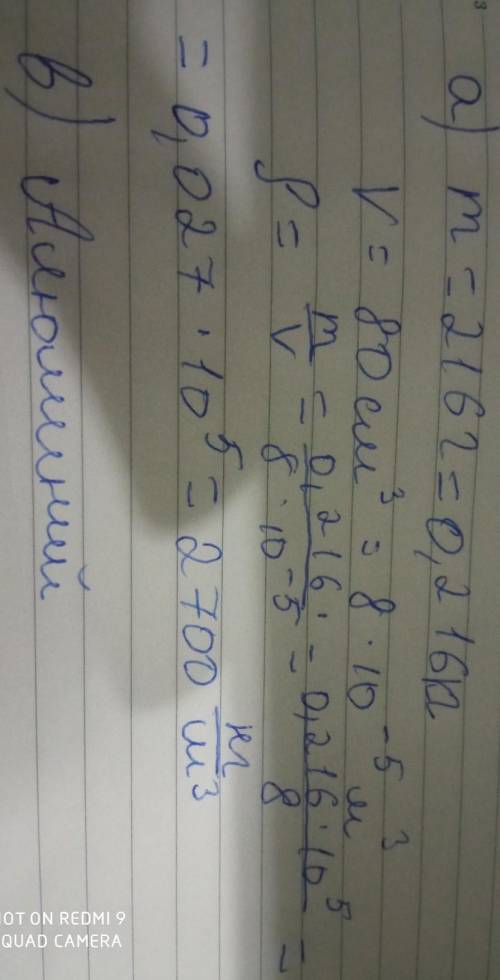 а) m = 216г = 0,216кг
V = 80см³ = 8·10⁻⁵ м³
ρ = m/V = 0,216/8·10⁻⁵ = 0,216·10⁵/8 =
= 0,027·10⁵ = 2700 кг/м³
в) Алюминий
SHOT ON REDMI 9
QUAD CAMERA